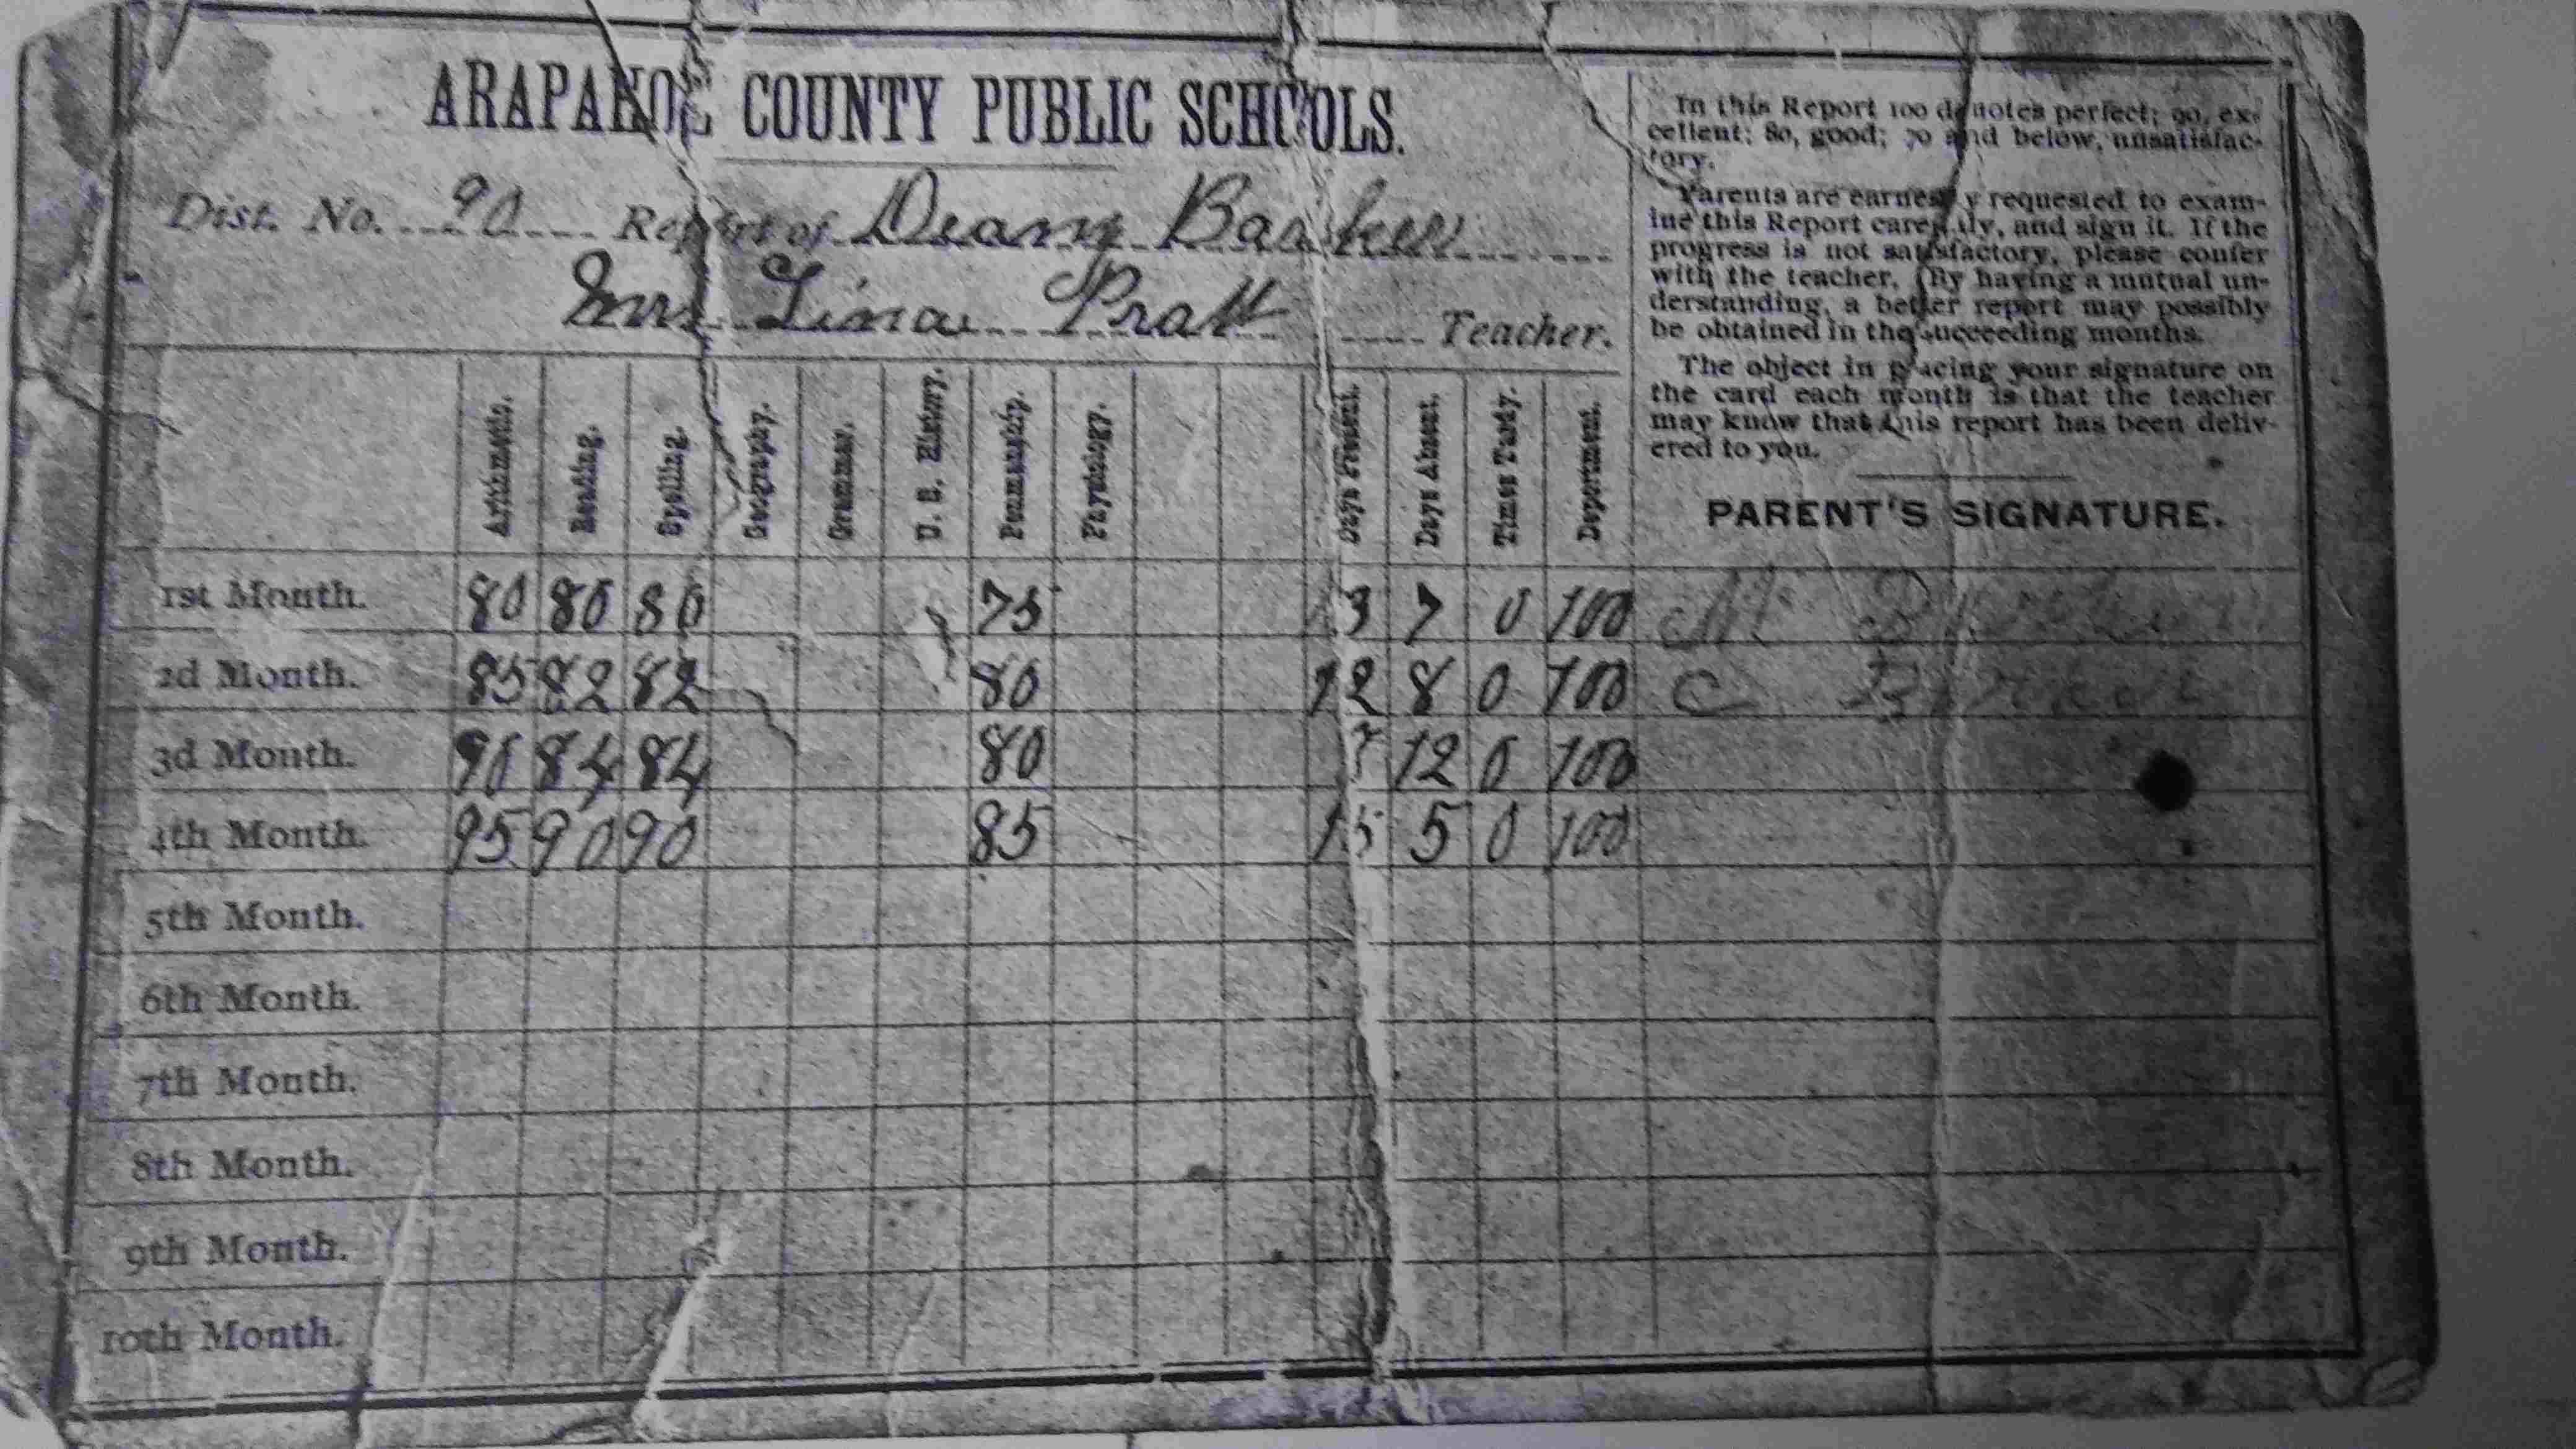 ARAPAHOE COUNTY PUBLIC SCHOOLS.
Dist. No. 90 Report of Deany Barker
Mrs Lina Pratt Teacher.
In this Report 100 denotes perfect; 90, ex-
cellent; 80, good; 70 and below, unsatisfac-
tory.
Parents are earnestly requested to exam-
ine this Report carefully, and sign it. If the
progress is not satisfactory, please confer
with the teacher. (By having a mutual un-
derstanding, a better report may possibly
be obtained in the succeeding months.
The object in placing your signature on
the card each month is that the teacher
may know that this report has been deliv-
ered to you.
PARENT'S SIGNATURE.
Arithmetic. Reading. Spelling. Geography. Grammar. U. S. History. Penmanship. Physiology. Days Present. Days Absent. Times Tardy. Deportment.
1st Month. 80 80 80 75 13 7 0 100 M Barker
2d Month. 85 82 82 80 12 8 0 100 C Barker
3d Month. 90 84 84 80 12 0 100
4th Month. 95 90 90 85 15 5 0 100
5th Month.
6th Month.
7th Month.
8th Month.
9th Month.
10th Month.